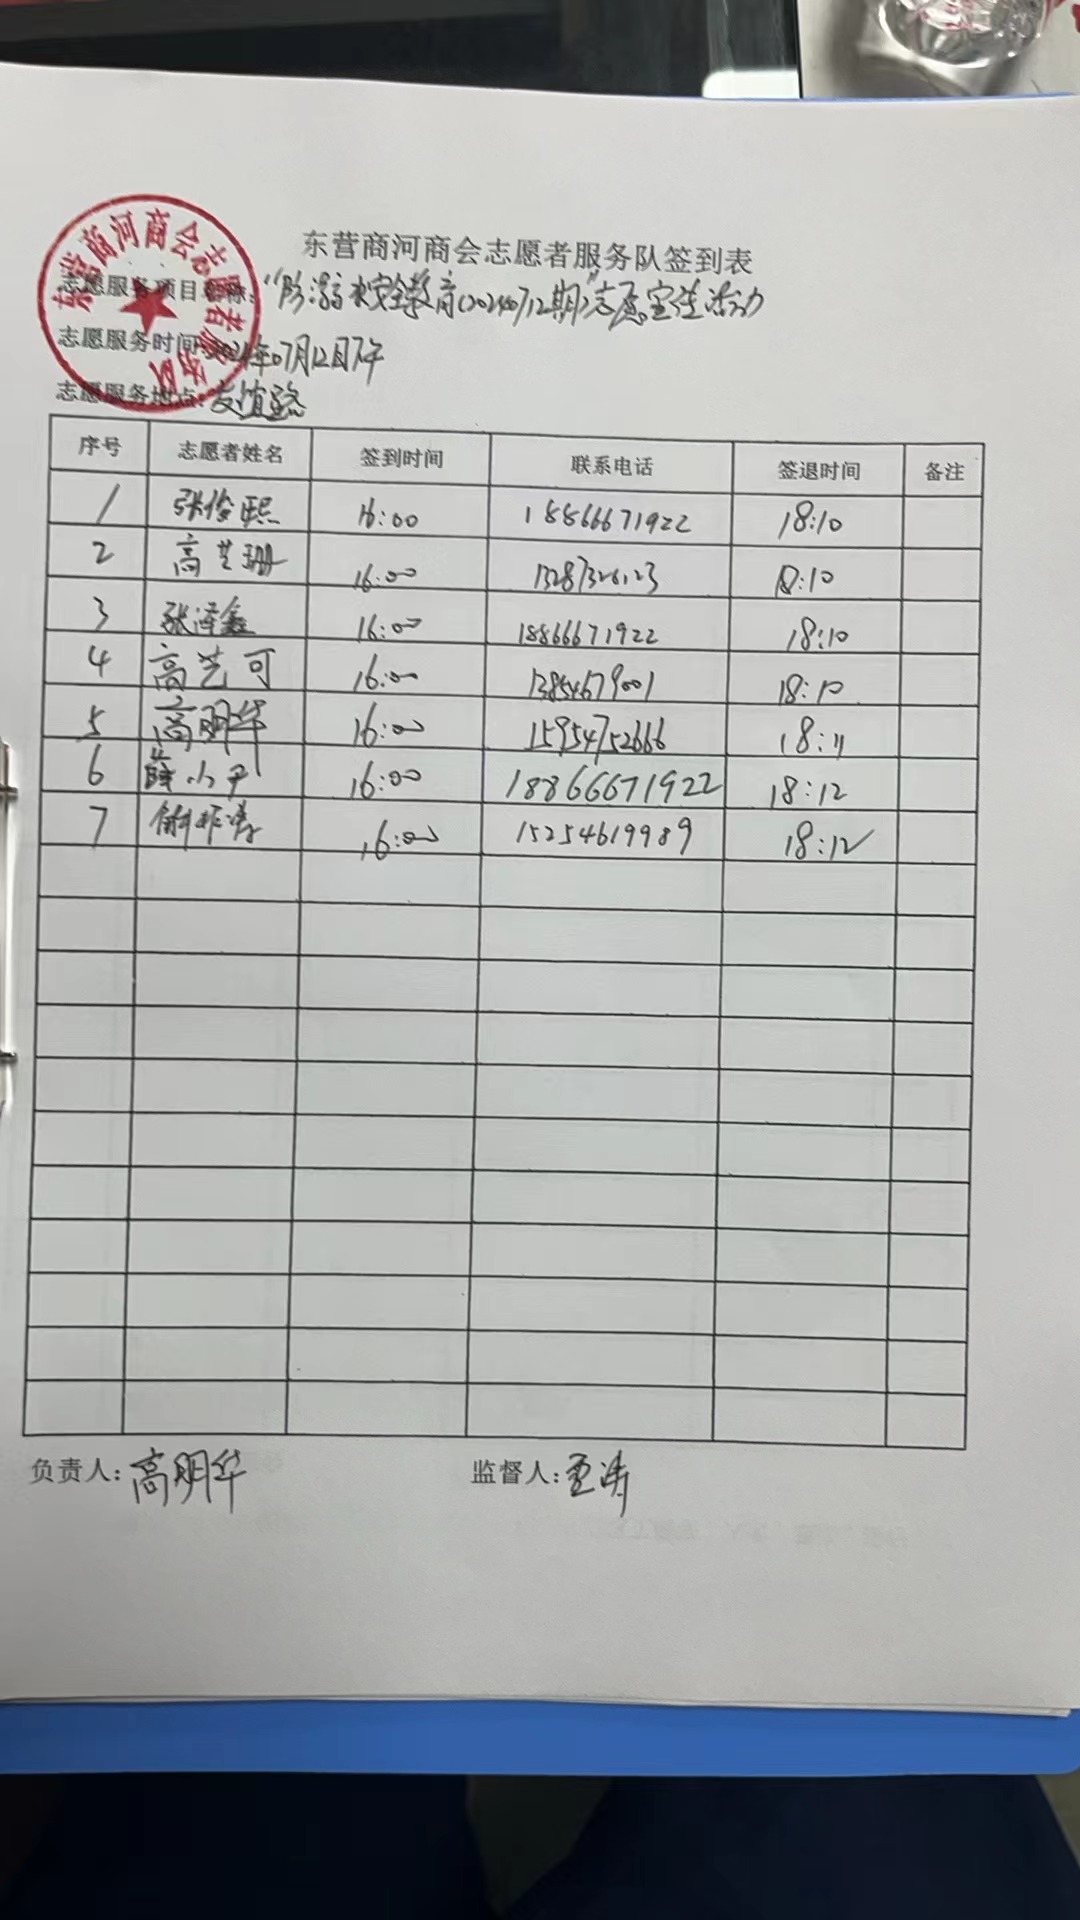 东营商河商会志愿者服务队
东营商河商会志愿者服务队签到表
志愿服务项目名称:“防溺水安全教育(20240712期)”志愿宣传活动
志愿服务时间:2024年07月12日下午
志愿服务地点:友谊路
序号 志愿者姓名 签到时间 联系电话 签退时间 备注
1 张俊熙 16:00 18866671922 18:10
2 高艺珊 16:00 18:10
3 张泽鑫 16:00 18866671922 18:10
4 高艺可 16:00 13854679001 18:10
5 高明华 16:00 15954752666 18:11
6 薛小平 16:00 18866671922 18:12
7 16:00 15254619989 18:12
负责人:高明华 监督人: